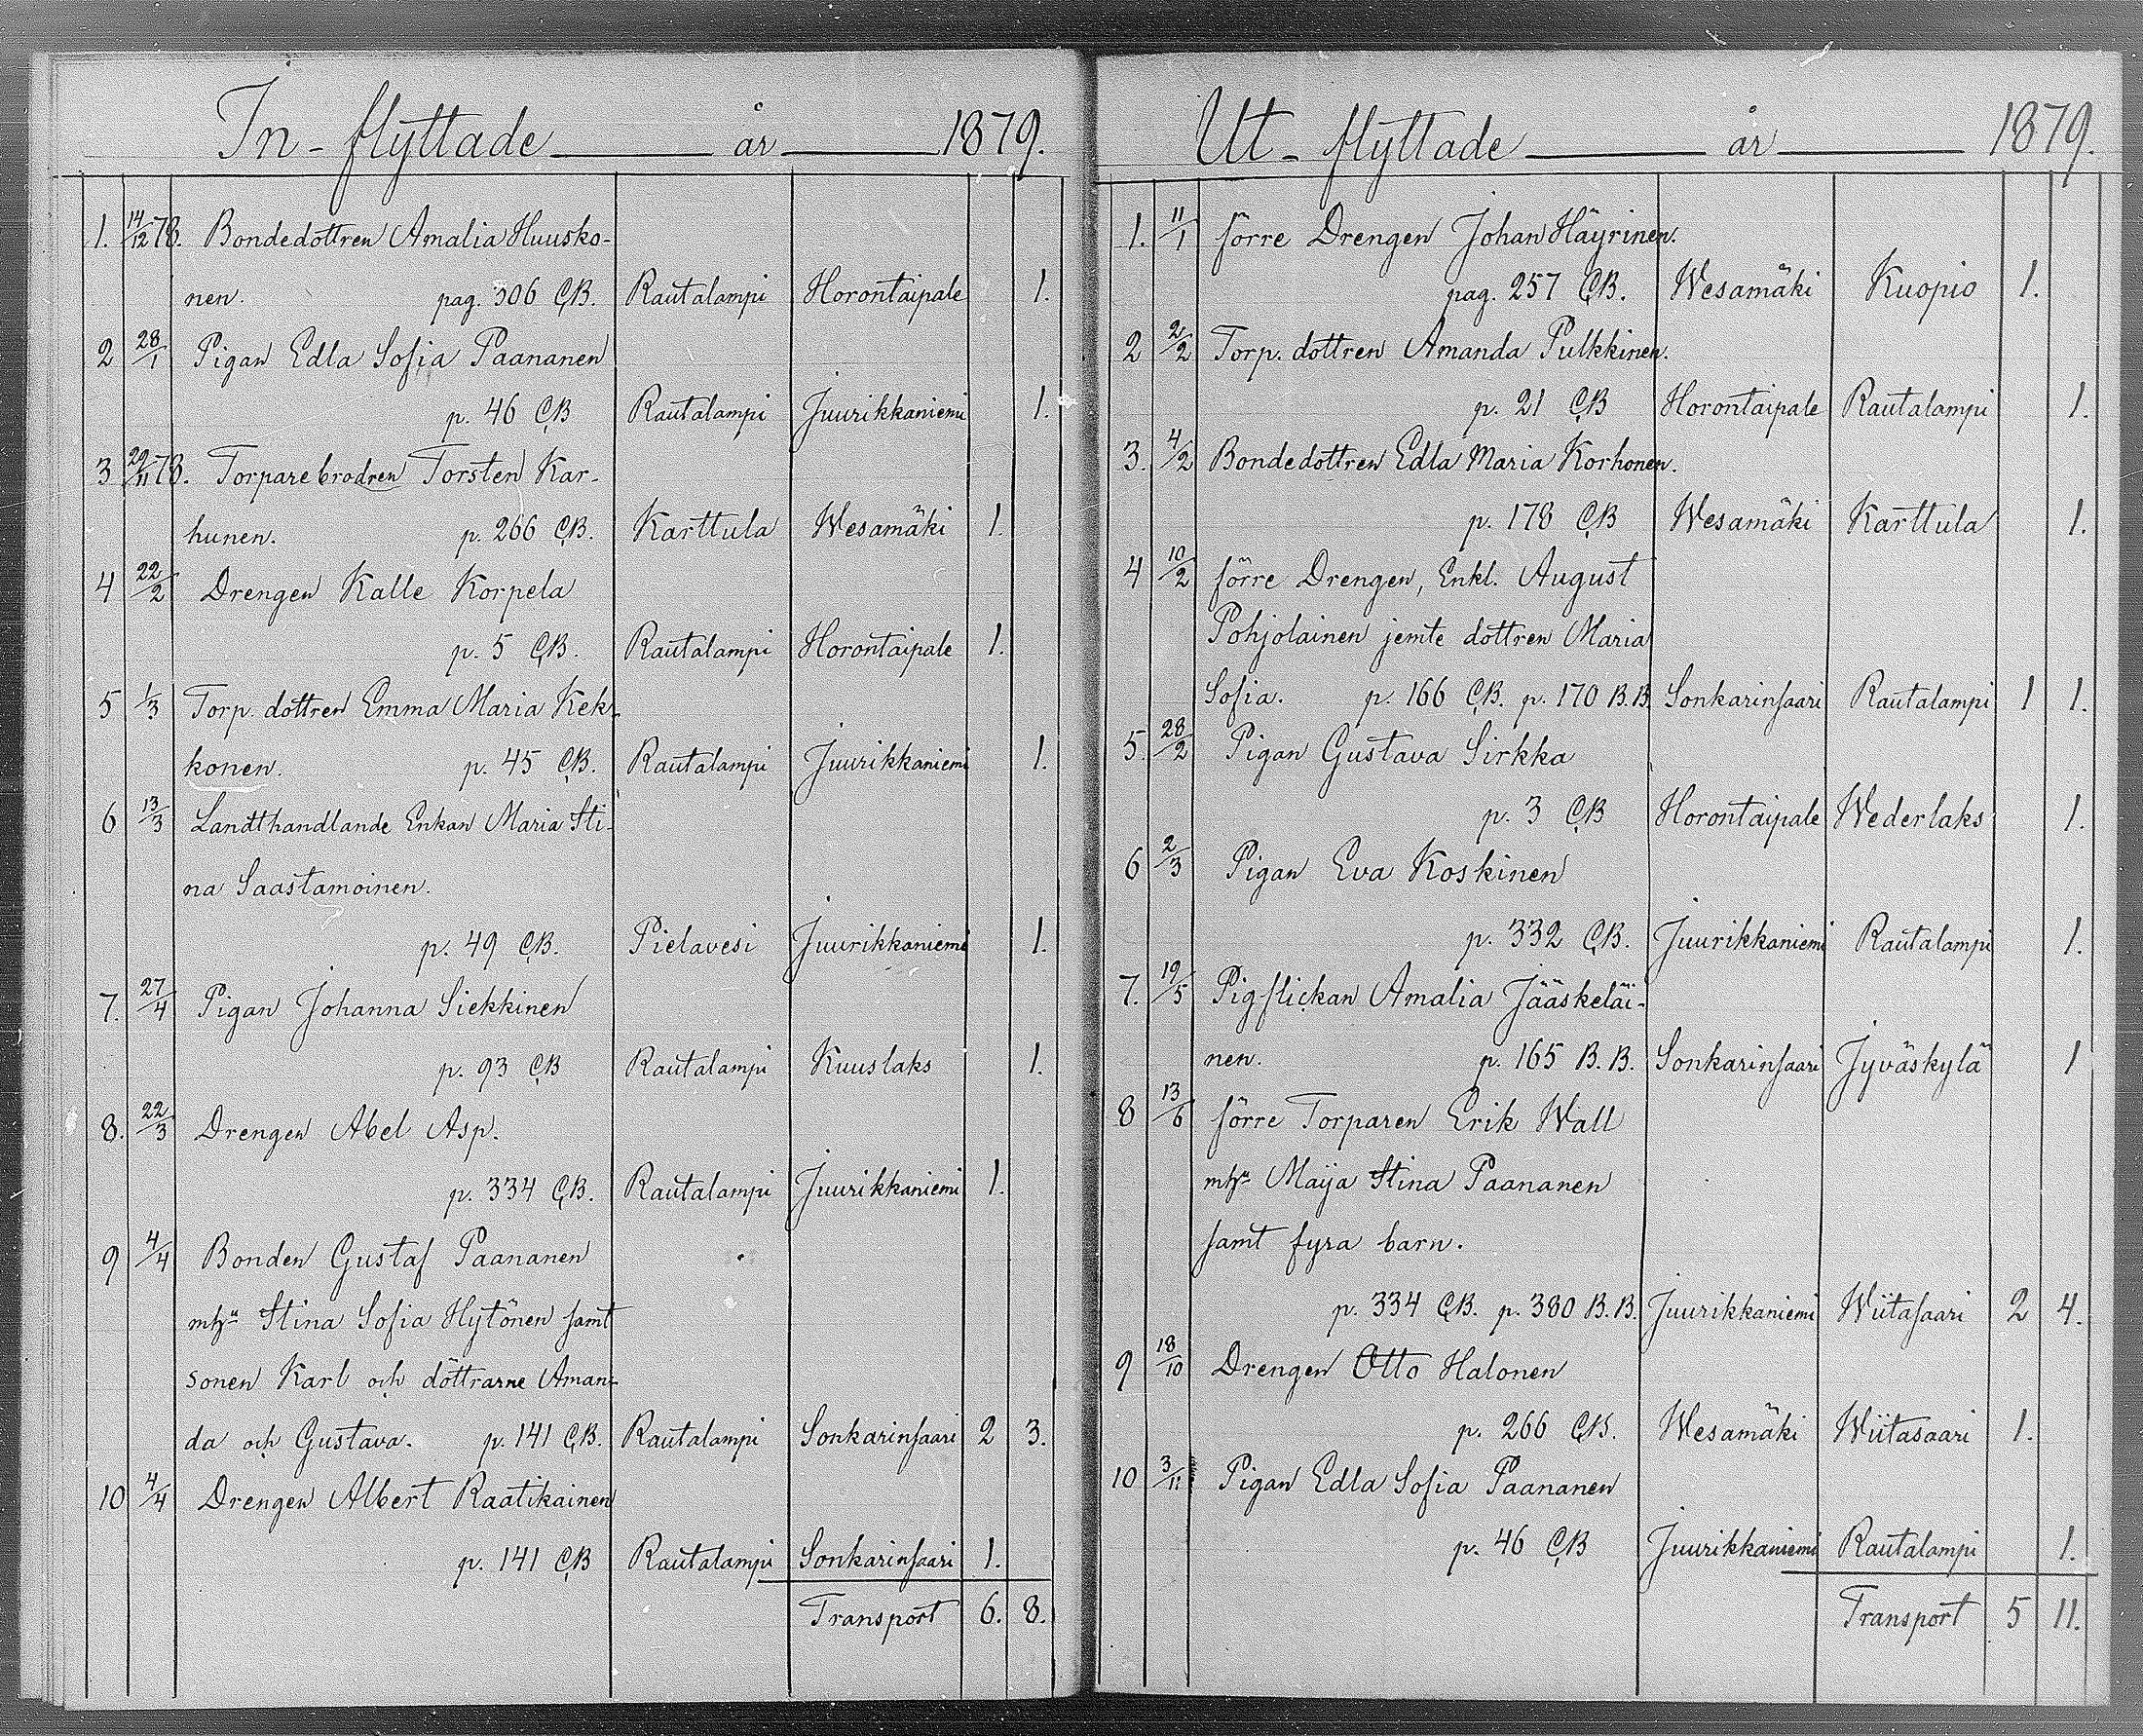 In-flyttade år 1879.
1. 14/12 78. Bondedottren Amalia Huusko-
nen. pag. 306 C.B. Rautalampi Horontaipale 1.
2 28/1 Pigan Edla Sofia Paananen
p. 46 C.B Rautalampi Juurikkaniemi 1.
3 29/11 78. Torparebrodren Torsten Kar-
hunen. p. 266 C.B. Karttula Wesamäki 1.
4 22/2 Drengen Kalle Korpela
p. 5 C.B. Rautalampi Horontaipale 1.
5 1/3 Torp. dottren Emma Maria Kek-
konen. p. 45 C.B. Rautalampi Juurikkaniemi 1.
6 13/3 Landthandlande Enkan Maria Sti-
na Saastamoinen.
p. 49 C.B. Pielavesi Juurikkaniemi 1.
7. 27/4 Pigan Johanna Siekkinen
p. 93 C.B Rautalampi Kuuslaks 1.
8. 22/3 Drengen Abel Asp.
p. 334 C.B. Rautalampi Juurikkaniemi 1.
9 4/4 Bonden Gustaf Paananen
mhu Stina Sofia Hytönen samt
sonen Karl och döttrarne Aman-
da och Gustava. p. 141 C.B. Rautalampi Sonkarinsaari 2 3.
10 4/4 Drengen Albert Raatikainen
p. 141 C.B Rautalampi Sonkarinsaari 1.
Transport 6. 8.
Ut-flyttade år 1879.
1. 11/1 förre Drengen Johan Häyrinen.
pag. 257 C.B. Wesamäki Kuopio 1.
2 2/2 Torp. dottren Amanda Pulkkinen.
p. 21 C.B Horontaipale Rautalampi 1.
3. 4/2 Bondedottren Edla Maria Korhonen.
p. 178 C.B Wesamäki Karttula 1.
4 10/2 förre Drengen, Enkl. August
Pohjolainen jemte dottren Maria
Sofia. p. 166 C.B. p. 170 B.B. Sonkarinsaari Rautalampi 1 1.
5. 28/2 Pigan Gustava Sirkka
p. 3 C.B Horontaipale Wederlaks 1.
6 2/3 Pigan Eva Koskinen
p. 332 C.B. Juurikkaniemi Rautalampi 1.
7. 19/5 Pigflickan Amalia Jääskeläi-
nen. p. 165 B.B. Sonkarinsaari Jyväskylä 1
8 13/6 förre Torparen Erik Wall
mhu Maija Stina Paananen
samt fyra barn.
p. 334 C.B. p. 380 B.B. Juurikkaniemi Wiitasaari 2 4.
9 18/10 Drengen Otto Halonen
p. 266 C.B. Wesamäki Wiitasaari 1.
10 3/11 Pigan Edla Sofia Paananen
p. 46 C.B Juurikkaniemi Rautalampi 1.
Transport 5 11.